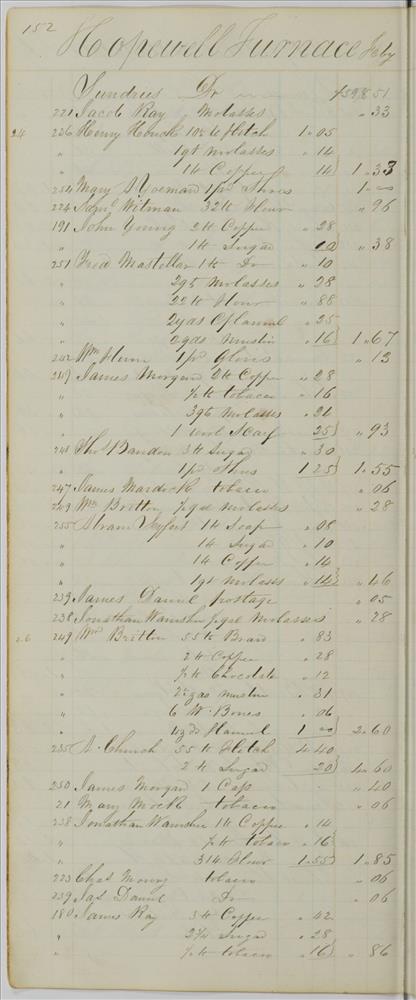 152
Hopewell Furnace July
Sundries Dr 51
221 Jacob Ray Molasses " 33
24 226 Henry Houck 10½ lb Flitch 1.05
" 1 qt Molasses " 14
" 1 lb Coffee 14 1.33
254 Mary A Yocman 1 pr Shoes 1 "
224 Saml Witman 32 lb Flour " 96
191 John Young 2 lb Coffee " 28
" 1 lb Sugar 10 " 38
251 Fred Mastellar 1 lb Do " 10
" 2 qts Molasses " 28
" 22 lb Flour " 88
" 2 yds C Flannel " 25
" 2 yds Muslin " 16 1.67
242 Wm 1 pr Gloves " 13
219 James Morgan 2 lb Coffee " 28
" ½ lb tobacco " 16
" 3 qts Molasses
" 1 wool Scarf 25 " 93
241 Thos Bandon 3 lb Sugar " 30
" 1 pr Shoes 1 25 1.55
247 James Murdock tobacco " 06
249 Wm Britton ½ gal Molasses " 28
255 Seyfert 1 lb Soap " 08
" 1 lb Sugar " 10
" 1 lb Coffee " 14
" 1 qt Molasses " 14 " 46
239 James Daniel postage " 05
238 Jonathan Wamsher ½ gal Molasses " 28
26 249 Wm Britton 55 lb " 83
" 2 lb Coffee " 28
" ½ lb Chocolate " 12
" yds Muslin " 31
" 6 Bones " 06
" yds Flannel 1 2.60
235 A. Church 55 lb Flitch 4.40
" 2 lb Sugar 20 4.60
250 James Morgan 1 Cap " 40
21 Mary Mock tobacco " 06
238 Jonathan Wamsher 1 lb Coffee " 14
" ½ lb tobacco " 16
" 31 lb Flour 1.55 1.85
223 Chas tobacco " 06
239 Jas Daniel Do " 06
180 James Ray 3 lb Coffee " 42
" 2¾ Sugar " 28
" ½ lb tobacco " 16 " 86